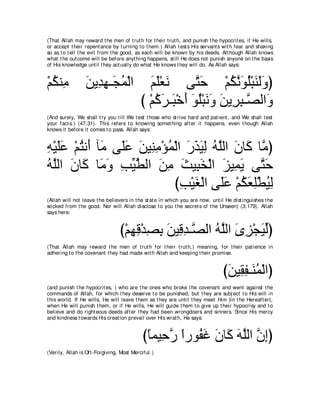 (That Allah may reward the men of truth for their truth, and punish the hypocrites, if He wills, or accept their repentance by turning to them.) Allah tests His servants with fear and shaking so as to tell the evil from the good, as each will be known by his deeds. Although Allah knows what the outcome will be before anything happens, still He does not punish anyone on the basis of His knowledge until they actually do what He knows they will do. As Allah says:
(وَلَنَبْلُوَنَّكُمْ حَتَّى نَعْلَمَ الْمُجَـهِدِينَ مِنكُمْ
وَالصَّـبِرِينَ وَنَبْلُوَ أَخْبَـرَكُمْ )
(And surely, We shall try you till We test those who strive hard and patient, and We shall test your facts.) (47:31). This refers to knowing something after it happens, even though Allah knows it before it comes to pass. Allah says:
(مَّا كَانَ اللَّهُ لِيَذَرَ الْمُؤْمِنِينَ عَلَى مَآ أَنتُمْ عَلَيْهِ
حَتَّى يَمِيزَ الْخَبِيثَ مِنَ الطَّيِّبِ وَمَا كَانَ اللَّهُ
لِيُطْلِعَكُمْ عَلَى الْغَيْبِ)
(Allah will not leave the believers in the state in which you are now, until He distinguishes the wicked from the good. Nor will Allah disclose to you the secrets of the Unseen) (3:179). Allah says here:
(لِّيَجْزِىَ اللَّهُ الصَّـدِقِينَ بِصِدْقِهِمْ)
(That Allah may reward the men of truth for their truth,) meaning, for their patience in adhering to the covenant they had made with Allah and keeping their promise.
(الْمُنَـفِقِينَ)
(and punish the hypocrites, ) who are the ones who broke the covenant and went against the commands of Allah, for which they deserve to be punished, but they are subject to His will in this world. If He wills, He will leave them as they are until they meet Him (in the Hereafter), when He will punish them, or if He wills, He will guide them to give up their hypocrisy and to believe and do righteous deeds after they had been wrongdoers and sinners. Since His mercy and kindness towards His creation prevail over His wrath, He says:
(إِنَّ اللَّهَ كَانَ غَفُوراً رَّحِيماً)
(Verily, Allah is Oft-Forgiving, Most Merciful.)